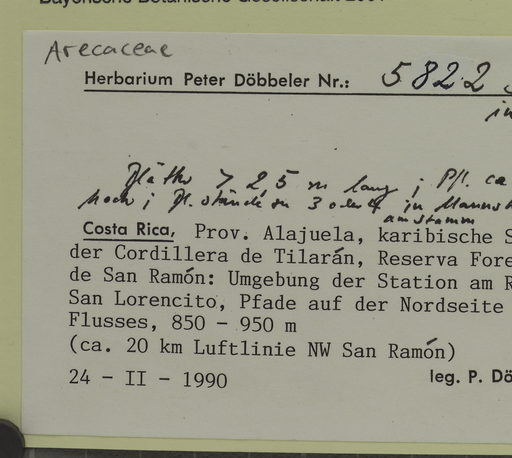 Bayerische Botanische Gesellschaft 2001
Arecaceae
Herbarium Peter Döbbeler Nr.: 5822
in
Blätter > 2,5 m lang; Pfl. ca
hoch; Bl. stände zu 3 oder 4 in Mannsh
am Stamm
Costa Rica, Prov. Alajuela, karibische S
der Cordillera de Tilarán, Reserva Fore
de San Ramón: Umgebung der Station am R
San Lorencito, Pfade auf der Nordseite
Flusses, 850 - 950 m
(ca. 20 km Luftlinie NW San Ramón)
24 - II - 1990 leg. P. Dö